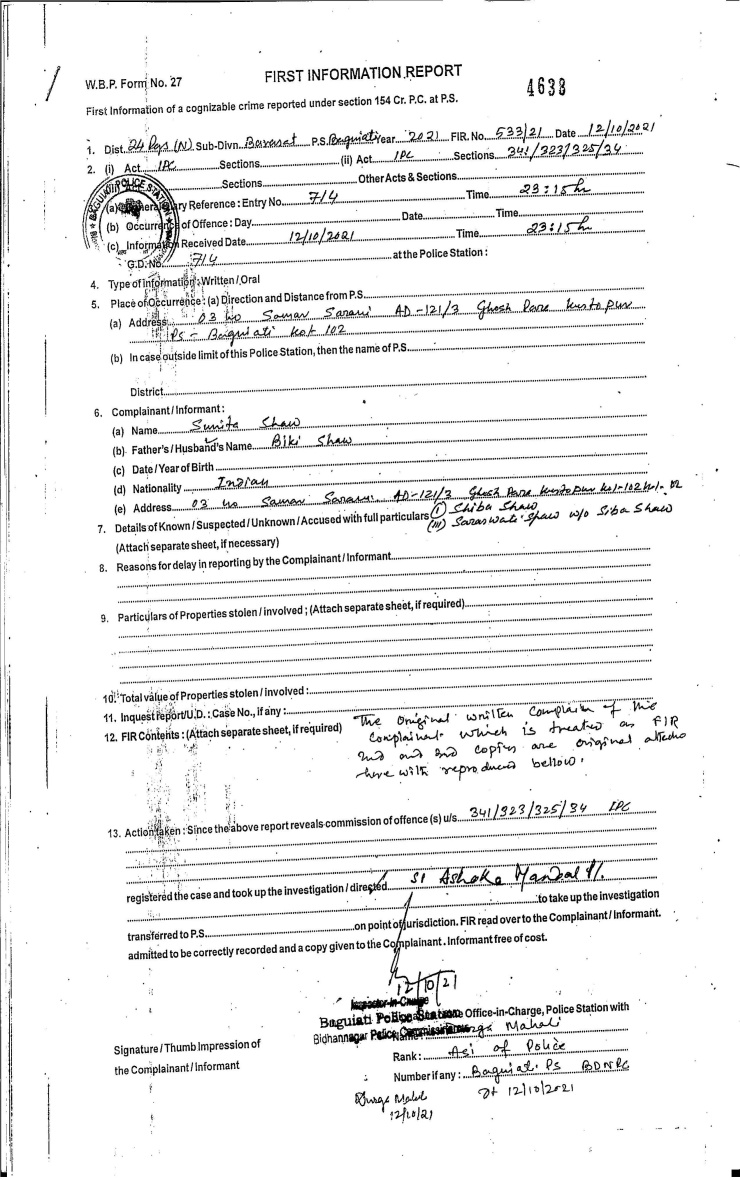 W.B.P. Form No. 27
FIRST INFORMATION REPORT
4638
First Information of a cognizable crime reported under section 154 Cr. P.C. at P.S.
1. Dist. 24 Pgs (N) Sub-Divn. Barasat P.S. Baguiati Year 2021 FIR. No. 533/21 Date 12/10/2021
2. (i) Act IPC Sections (ii) Act IPC Sections 341/323/325/34
Sections Other Acts & Sections
(a) General Diary Reference : Entry No. 714 Time 23:15 hr
(b) Occurrence of Offence : Day Date Time
(c) Information Received Date 12/10/2021 Time 23:15 hr
G.D. No. 714 at the Police Station :
BAGUIATI POLICE STATION
4. Type of information : Written / Oral
5. Place of Occurrence : (a) Direction and Distance from P.S.
(a) Address 03 no Samar Sarani AD-121/3 Ghosh Para Kustopur
Ps - Baguiati Kol 102
(b) In case outside limit of this Police Station, then the name of P.S.
District
6. Complainant / Informant :
(a) Name Sunita Shaw
(b) Father's / Husband's Name Biki Shaw
(c) Date / Year of Birth
(d) Nationality Indian
(e) Address 03 no Samar Sarani AD-121/3 Ghosh Para Kustopur Kol-102
7. Details of Known / Suspected / Unknown / Accused with full particulars (i) Shiba Shaw
(Attach separate sheet, if necessary) Saraswati Shaw w/o Siba Shaw
8. Reasons for delay in reporting by the Complainant / Informant
9. Particulars of Properties stolen / involved ; (Attach separate sheet, if required)
10. Total value of Properties stolen / involved :
11. Inquest report/U.D. : Case No., if any :
12. FIR Contents : (Attach separate sheet, if required) The original written complain of the
complainat which is treated as FIR
2nd and 3rd copies are original
here with reproduced bellow.
13. Action taken : Since the above report reveals commission of offence (s) u/s. 341/323/325/34 IPC
registered the case and took up the investigation / directed SI Ashoke Mandal
to take up the investigation
transferred to P.S. on point of jurisdiction. FIR read over to the Complainant / Informant.
admitted to be correctly recorded and a copy given to the Complainant. Informant free of cost.
12/10/21
Inspector-in-Charge
Baguiati Police Station Office-in-Charge, Police Station with
Bidhannagar Police Commissionerate Name Durga Mahali
Signature / Thumb Impression of
the Complainant / Informant
Rank : Asi of Police
Number if any : Baguiati PS BDNPC
Dt 12/10/2021
12/10/21